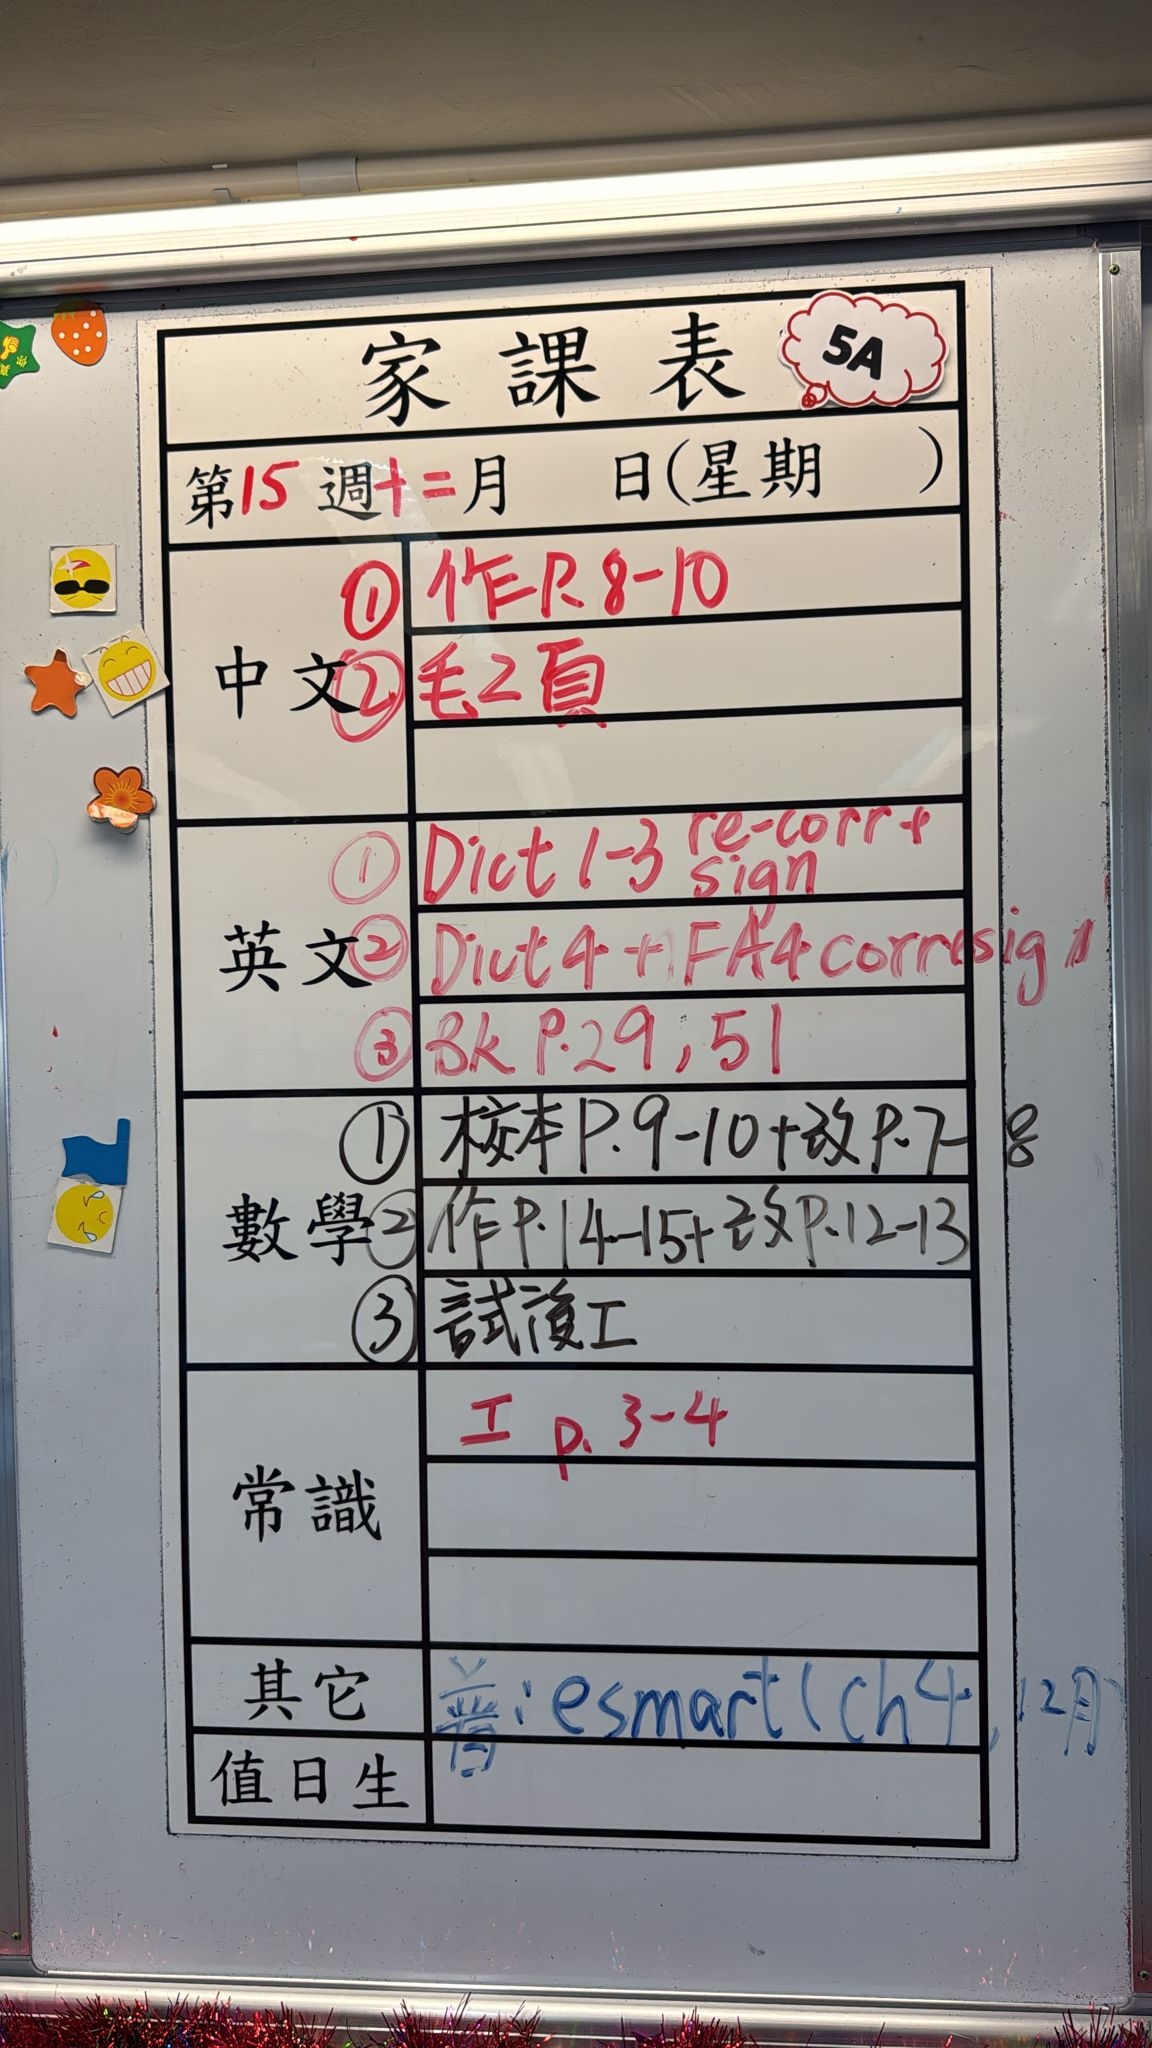 家課表 5A
第15週十二月 日(星期 )
中文
① 作P.8-10
② 毛2頁
英文
① Dict 1-3 re-corr + sign
② Dict 4 + FA4 corr + sign
③ Bk P.29, 51
數學
① 校本P.9-10+改P.7-8
② 作P.14-15+改P.12-13
③ 試後工
常識
工 p. 3-4
其它
普:esmart(ch4, 12月)
值日生